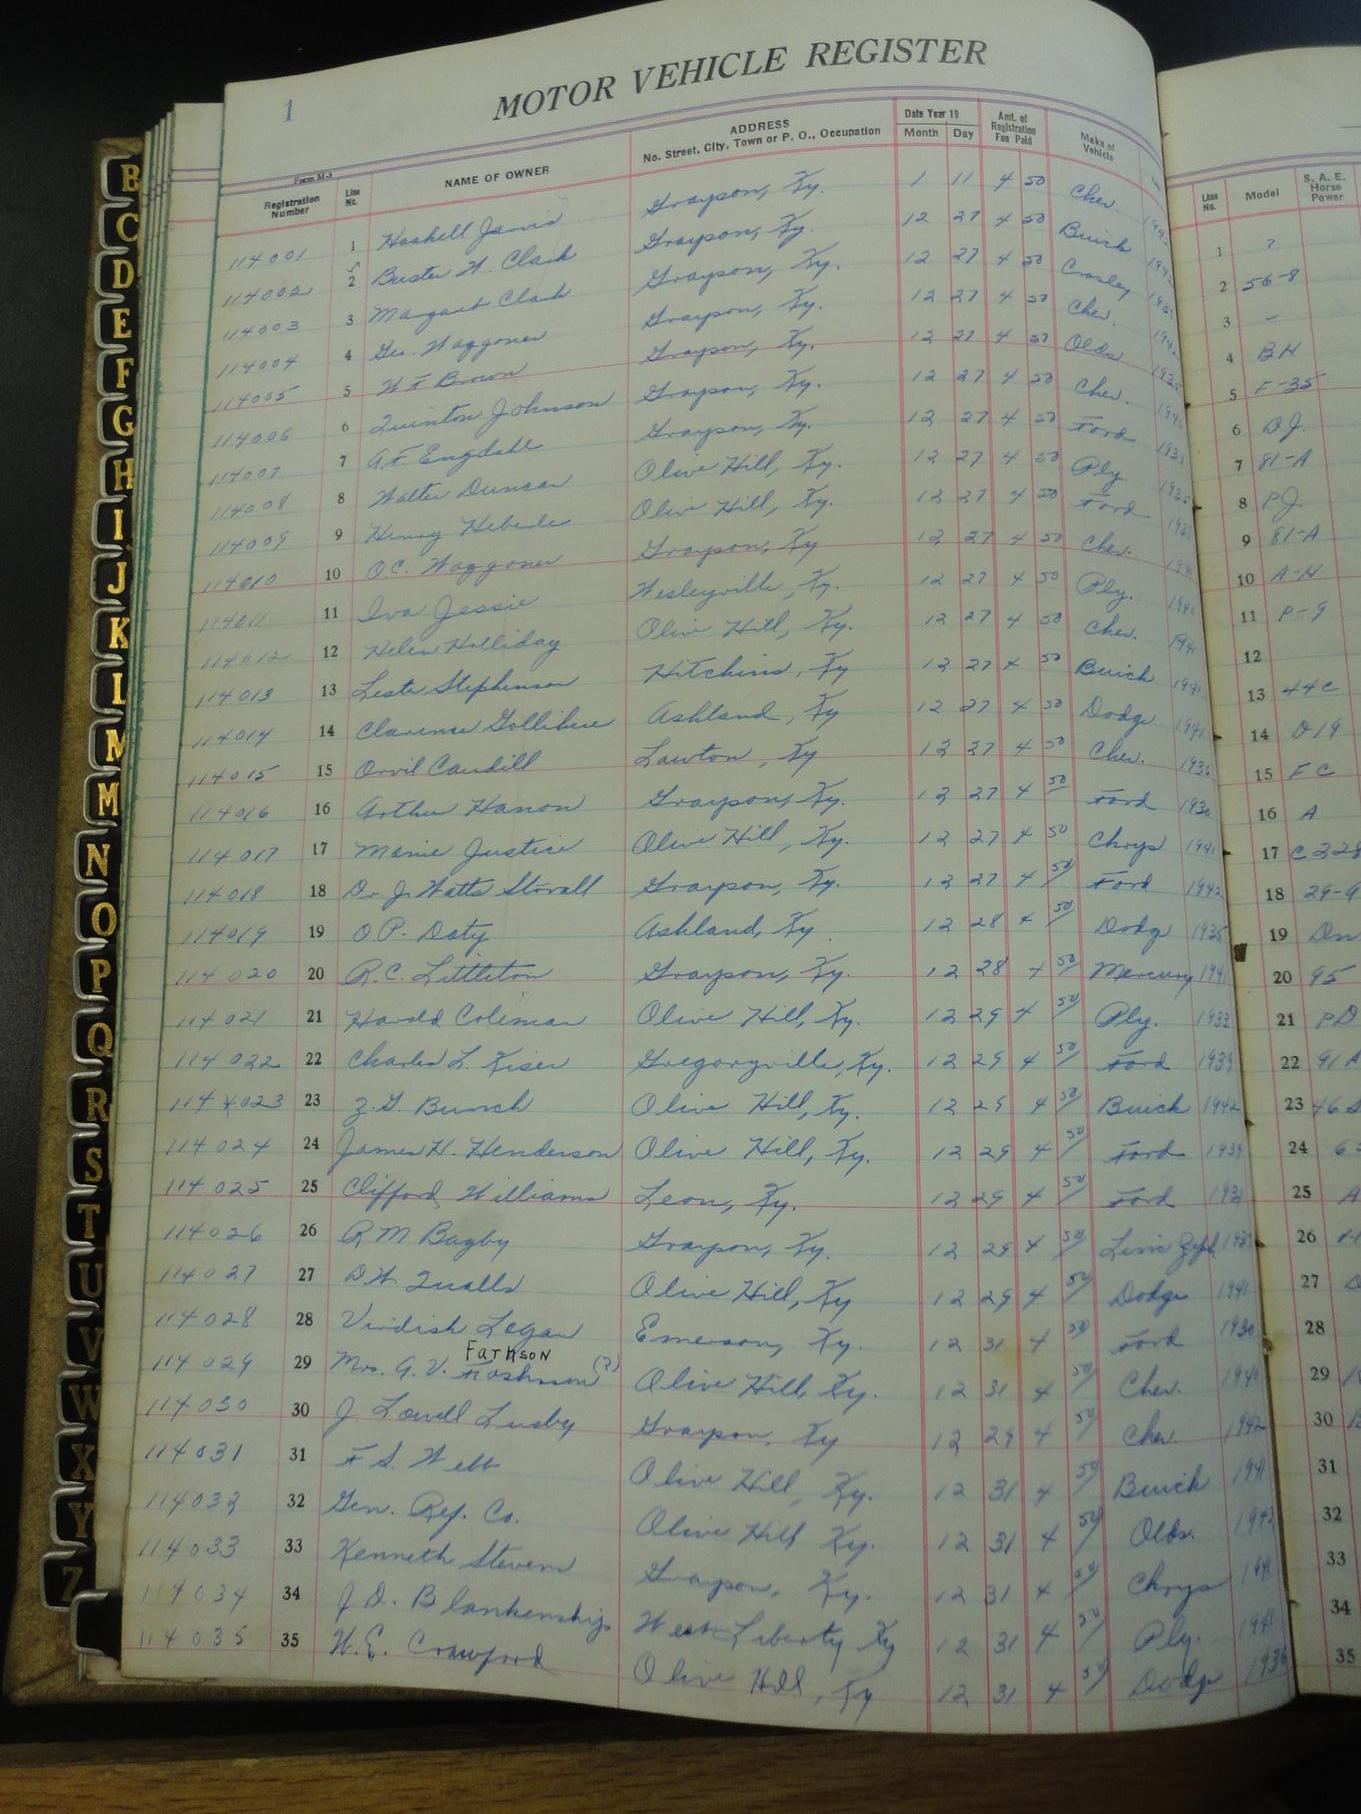 1
MOTOR VEHICLE REGISTER
Form M-3
Registration Number Line No. NAME OF OWNER ADDRESS No. Street, City, Town or P. O., Occupation Date Year 19 Month Day Amt. of Registration Fee Paid Make of Vehicle Line No. Model S. A. E. Horse Power
114001 1 Haskell Jarvis Grayson, Ky. 1 11 4 50 Chev. 1 ?
114002 2 Buster W. Clark Grayson, Ky. 12 27 4 50 Buick 2 56-8
114003 3 Margaret Clark Grayson, Ky. 12 27 4 50 Crosley 3 -
114004 4 Geo. Waggoner Grayson, Ky. 12 27 4 50 Chev. 4 BH
114005 5 W F Brown Grayson, Ky. 12 27 4 50 Olds 1935 5 F-35
114006 6 Quinton Johnson Grayson, Ky. 12 27 4 50 Chev. 6 DJ.
114007 7 A.F. Engdell Grayson, Ky. 12 27 4 50 Ford 7 81-A
114008 8 Walter Duncan Olive Hill, Ky. 12 27 4 50 Ply. 8 PJ.
114009 9 Henry Heberle Olive Hill, Ky. 12 27 4 50 Ford 9 81-A
114010 10 O.C. Waggoner Grayson, Ky 12 27 4 50 Chev. 1941 10 A-H
114011 11 Iva Jessie Wesleyville, Ky. 12 27 4 50 Ply. 1940 11 P-9
114012 12 Helen Holliday Olive Hill, Ky. 12 27 4 50 Chev. 1941 12
114013 13 Lester Stephenson Hitchins, Ky 12 27 4 50 Buick 1941 13 44C
114014 14 Clarence Gollihue Ashland, Ky 12 27 4 50 Dodge 1941 14 D19
114015 15 Orvil Caudill Lawton, Ky 12 27 4 50 Chev. 1936 15 FC
114016 16 Arthur Hanon Grayson, Ky. 12 27 4 50 Ford 1930 16 A
114017 17 Mamie Justice Olive Hill, Ky. 12 27 4 50 Chrys 1941 17 C228
114018 18 Dr J. Watts Stovall Grayson, Ky. 12 27 4 50 Ford 1942 18 29-A
114019 19 O.P. Daty Ashland, Ky. 12 28 4 50 Dodge 1935 19 Du
114020 20 R.C. Littleton Grayson, Ky. 12 28 4 50 Mercury 1941 20 95
114021 21 Harold Coleman Olive Hill, Ky. 12 29 4 50 Ply. 1933 21 PD
114022 22 Charles L. Kiser Gregoryville, Ky. 12 29 4 50 Ford 1939 22 91A
114023 23 Z.G. Bunch Olive Hill, Ky. 12 29 4 50 Buick 1942 23 46S
114024 24 James H. Henderson Olive Hill, Ky. 12 29 4 50 Ford 1939 24
114025 25 Clifford Williams Leon, Ky. 12 29 4 50 Ford 1931 25 A
114026 26 R M Bagby Grayson, Ky. 12 29 4 50 Linc Zeph 26
114027 27 D.W. Qualls Olive Hill, Ky 12 29 4 50 Dodge 1941 27
114028 28 Virdish Logan Emerson, Ky. 12 31 4 50 Ford 1930 28
Farkson
114029 29 Mrs. G. V. (?) Olive Hill, Ky. 12 31 4 50 Chev. 1940 29
114030 30 J. Lowell Lusby Grayson, Ky 12 29 4 50 Chev. 1942 30
114031 31 F S. Webb Olive Hill, Ky. 12 31 4 50 Buick 1941 31
114032 32 Gen. Ref. Co. Olive Hill Ky. 12 31 4 50 Olds. 1942 32
114033 33 Kenneth Stevens Grayson, Ky. 12 31 4 50 Chrys 1941 33
114034 34 J. D. Blankenship West Liberty Ky 12 31 4 50 Ply. 1941 34
114035 35 W. E. Crawford Olive Hill, Ky 12 31 4 50 Dodge 1936 35
B
C
D
E
F
G
H
I
J
K
L
M
M
N
O
P
Q
R
S
T
U
V
W
X
Y
Z